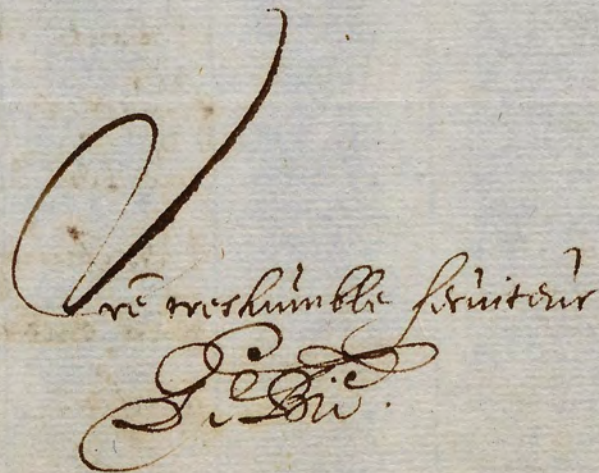 Vre treshumble seruiteur